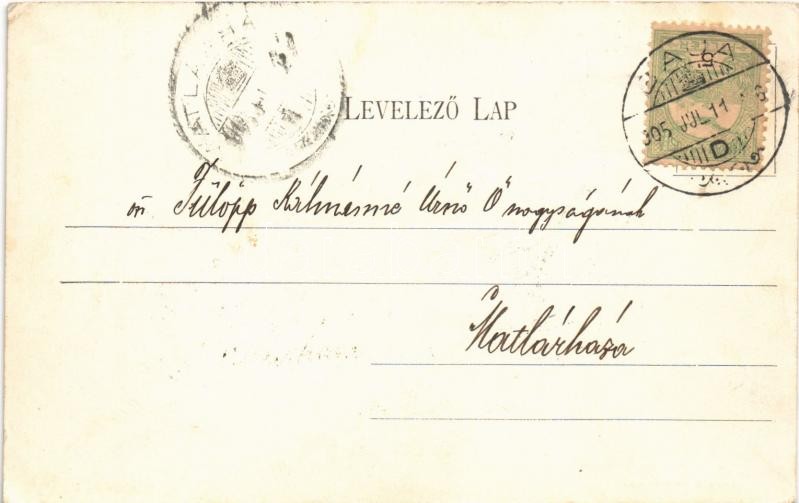 MATLÁRHÁZA
LEVELEZŐ LAP
BAJA
905 JUL 11
D
Fülöpp Kálmánné Úrnő Ő nagyságának
Matlárháza